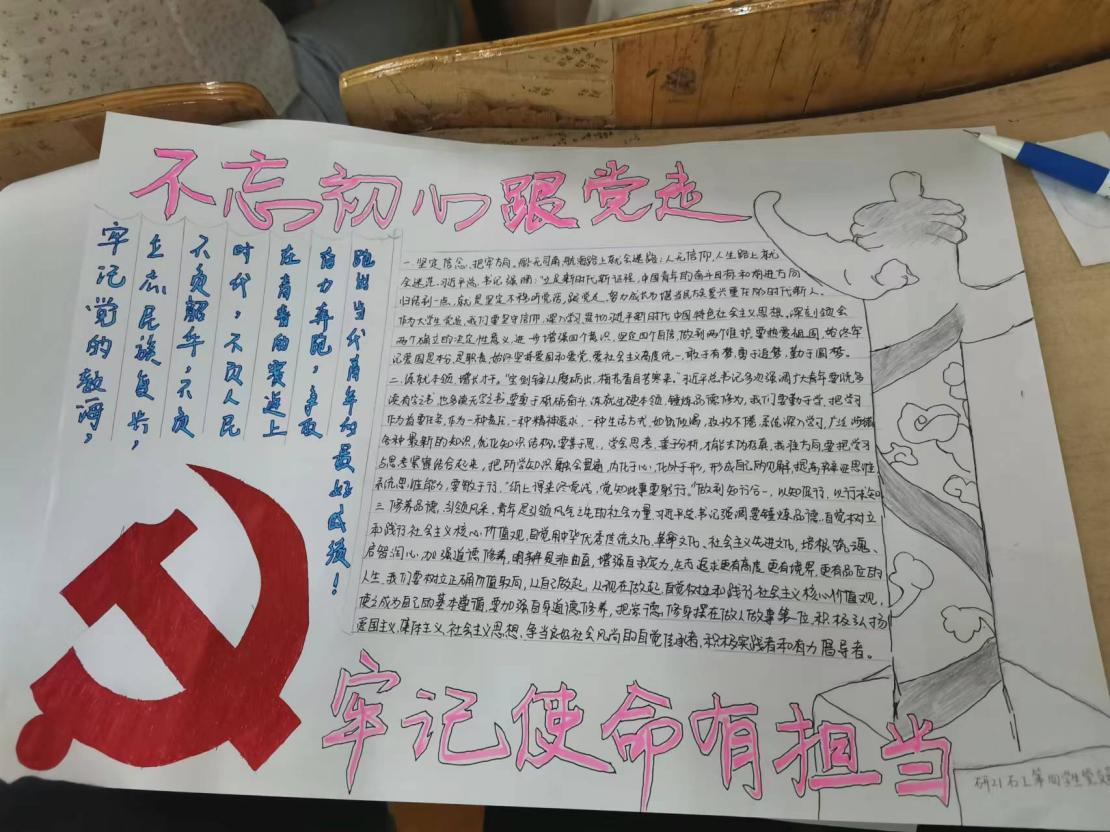 不忘初心跟党走
牢记党的教诲，
立志民族复兴，
不负韶华，不负
时代，不负人民
在青春的赛道上
奋力奔跑，争取
跑出当代青年的最好成绩！
一.坚定信念，把牢方向。船无司南，航海路上就会迷路；人无信仰，人生路上就
会迷茫。习近平总书记强调：
作为大学生党员，我们要坚守信仰，深入学习贯彻习近平新时代中国特色社会主义思想。深刻领会
两个确立的决定性意义，进一步增强四个意识，坚定四个自信，做到两个维护。要热爱祖国，始终牢
记爱国是本分，是职责，始终坚持爱国和爱党、爱社会主义高度统一，敢于有梦，勇于追梦，勤于圆梦。
二.练就本领，增长才干。“宝剑锋从磨砺出，梅花香自苦寒来。”习近平总书记多次强调广大青年要既多
读有字书，也多读无字书，要勇于砥砺奋斗，练就过硬本领，锤炼品德修为，我们要勤于学，把学习
作为首要任务，作为一种责任，一种精神追求，一种生活方式，如饥似渴，孜孜不倦，系统深入学习，广泛涉猎
各种最新的知识，优化知识结构。要善于思，学会思考，善于分析，才能去伪存真，我往方向，要把学习
与思考紧密结合起来，把所学知识融会贯通，内化于心，化外于形，形成自己的见解，提高辩证思维
系统思维能力，要敢于行，“纸上得来终觉浅，觉知此事要躬行。”做到知行合一，以知促行，以行求知
三.修养品德，引领风采。青年是引领风气之先的社会力量，习近平总书记强调要锤炼品德，自觉树立
和践行社会主义核心价值观，自觉用中华优秀传统文化、革命文化、社会主义先进文化，培根铸魂、
启智润心，加强道德修养，明辨是非曲直，增强自我定力，矢志追求更有高度，更有境界，更有品位的
人生，我们要树立正确价值取向，从自己做起，从现在做起，自觉树立和践行社会主义核心价值观，
使之成为自己的基本遵循，要加强自身道德修养，把崇德修身摆在做人做事第一位，积极弘扬
爱国主义，集体主义，社会主义思想，争当良好社会风尚的自觉传承者，积极实践者和有力倡导者。
牢记使命有担当
研21石工第四学生党支